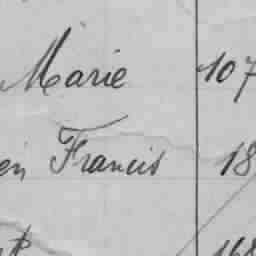 Marie 107
en Francis 18
168